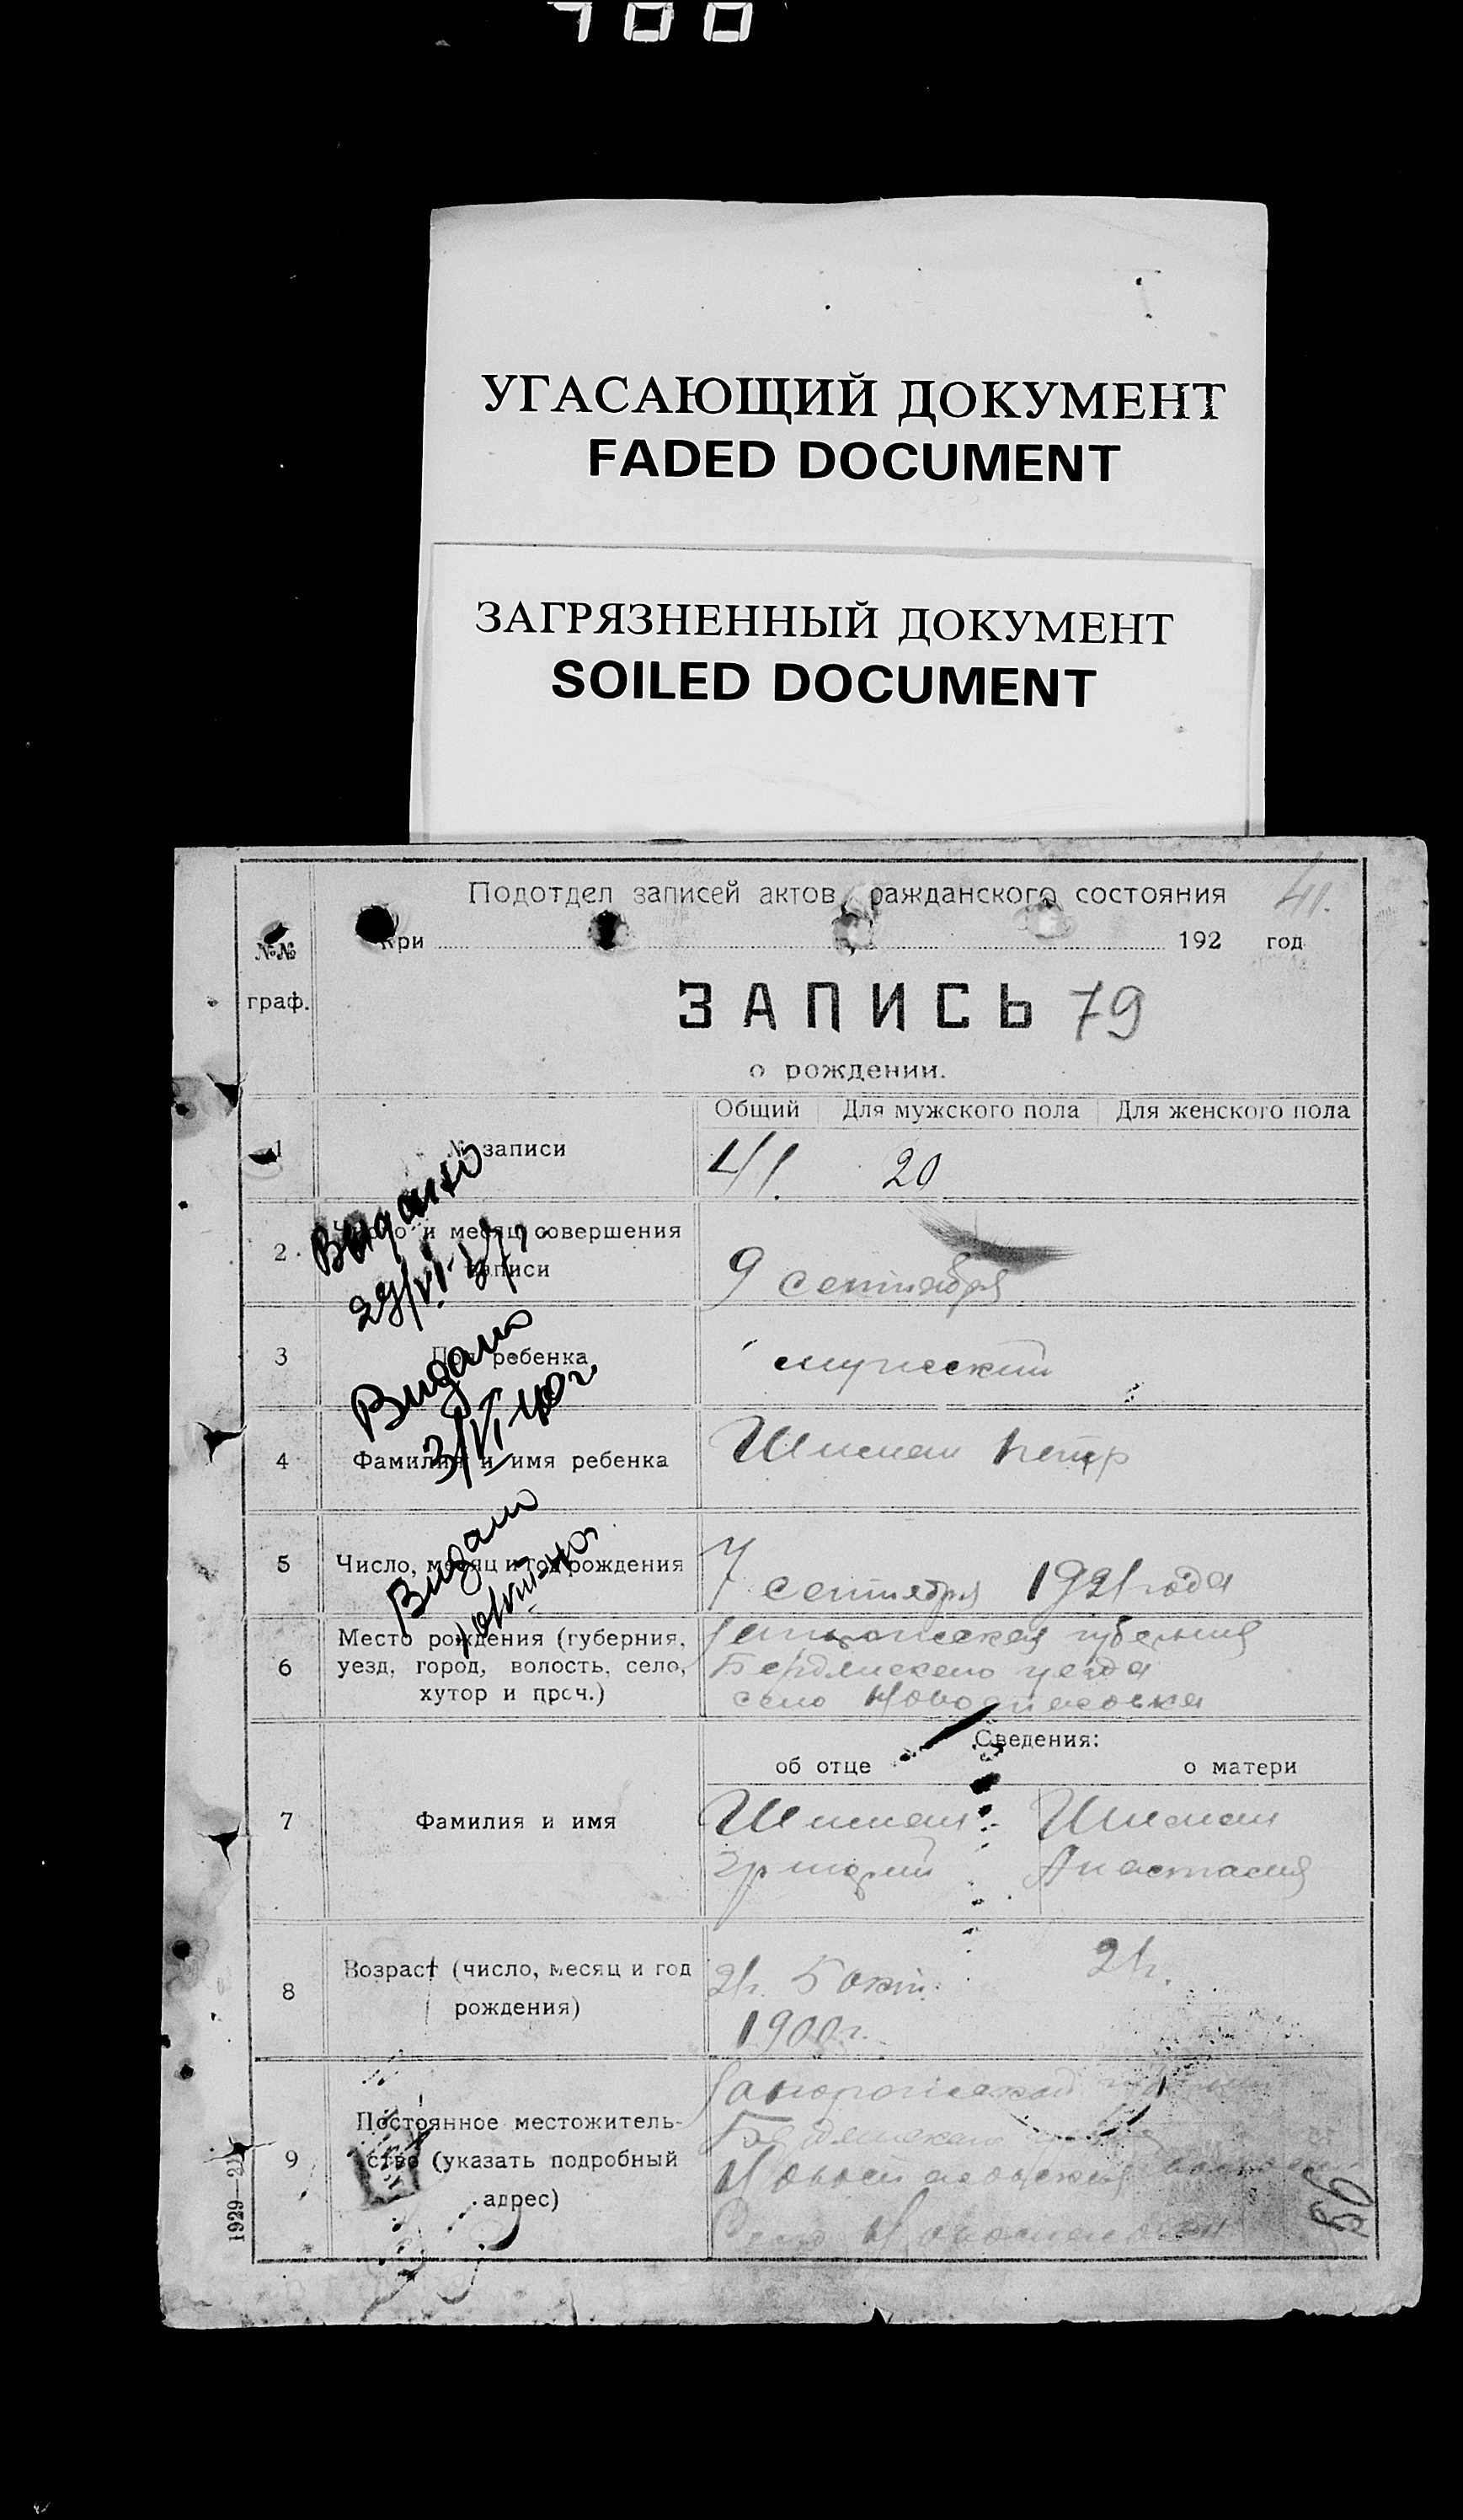 700
УГАСАЮЩИЙ ДОКУМЕНТ
FADED DOCUMENT
ЗАГРЯЗНЕННЫЙ ДОКУМЕНТ
SOILED DOCUMENT
Подотдел записей актов гражданского состояния 41.
При 192 год
№№
граф.
ЗАПИСЬ 79
о рождении.
Общий Для мужского пола Для женского пола
1 № записи 41. 20
Выдано
2. Число и месяц совершения
записи 9 сентября
3 Пол ребенка мужеский
Видано
3/VI 40г.
4 Фамилия и имя ребенка Шишман Петр
Видано
5 Число, месяц и год рождения 7 сентября 1921 года
6 Место рождения (губерния, уезд, город, волость, село, хутор и проч.)
губерния
Бердянского уезда
село Новоспасовка
Сведения:
об отце о матери
7 Фамилия и имя Шишман Шишман
Григорий Анастасия
8 Возраст (число, месяц и год
рождения)
21г. 5 окт. 21г.
1900г.
9 Постоянное местожитель-
ство (указать подробный
адрес)
Запорожской
Бердянского
Новоспасовской
Село
1929—21